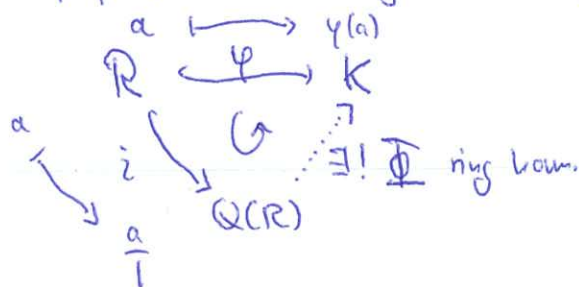 a ↦ φ(a)
R φ K
a i ∃! Φ ring hom.
Q(R)
a/1